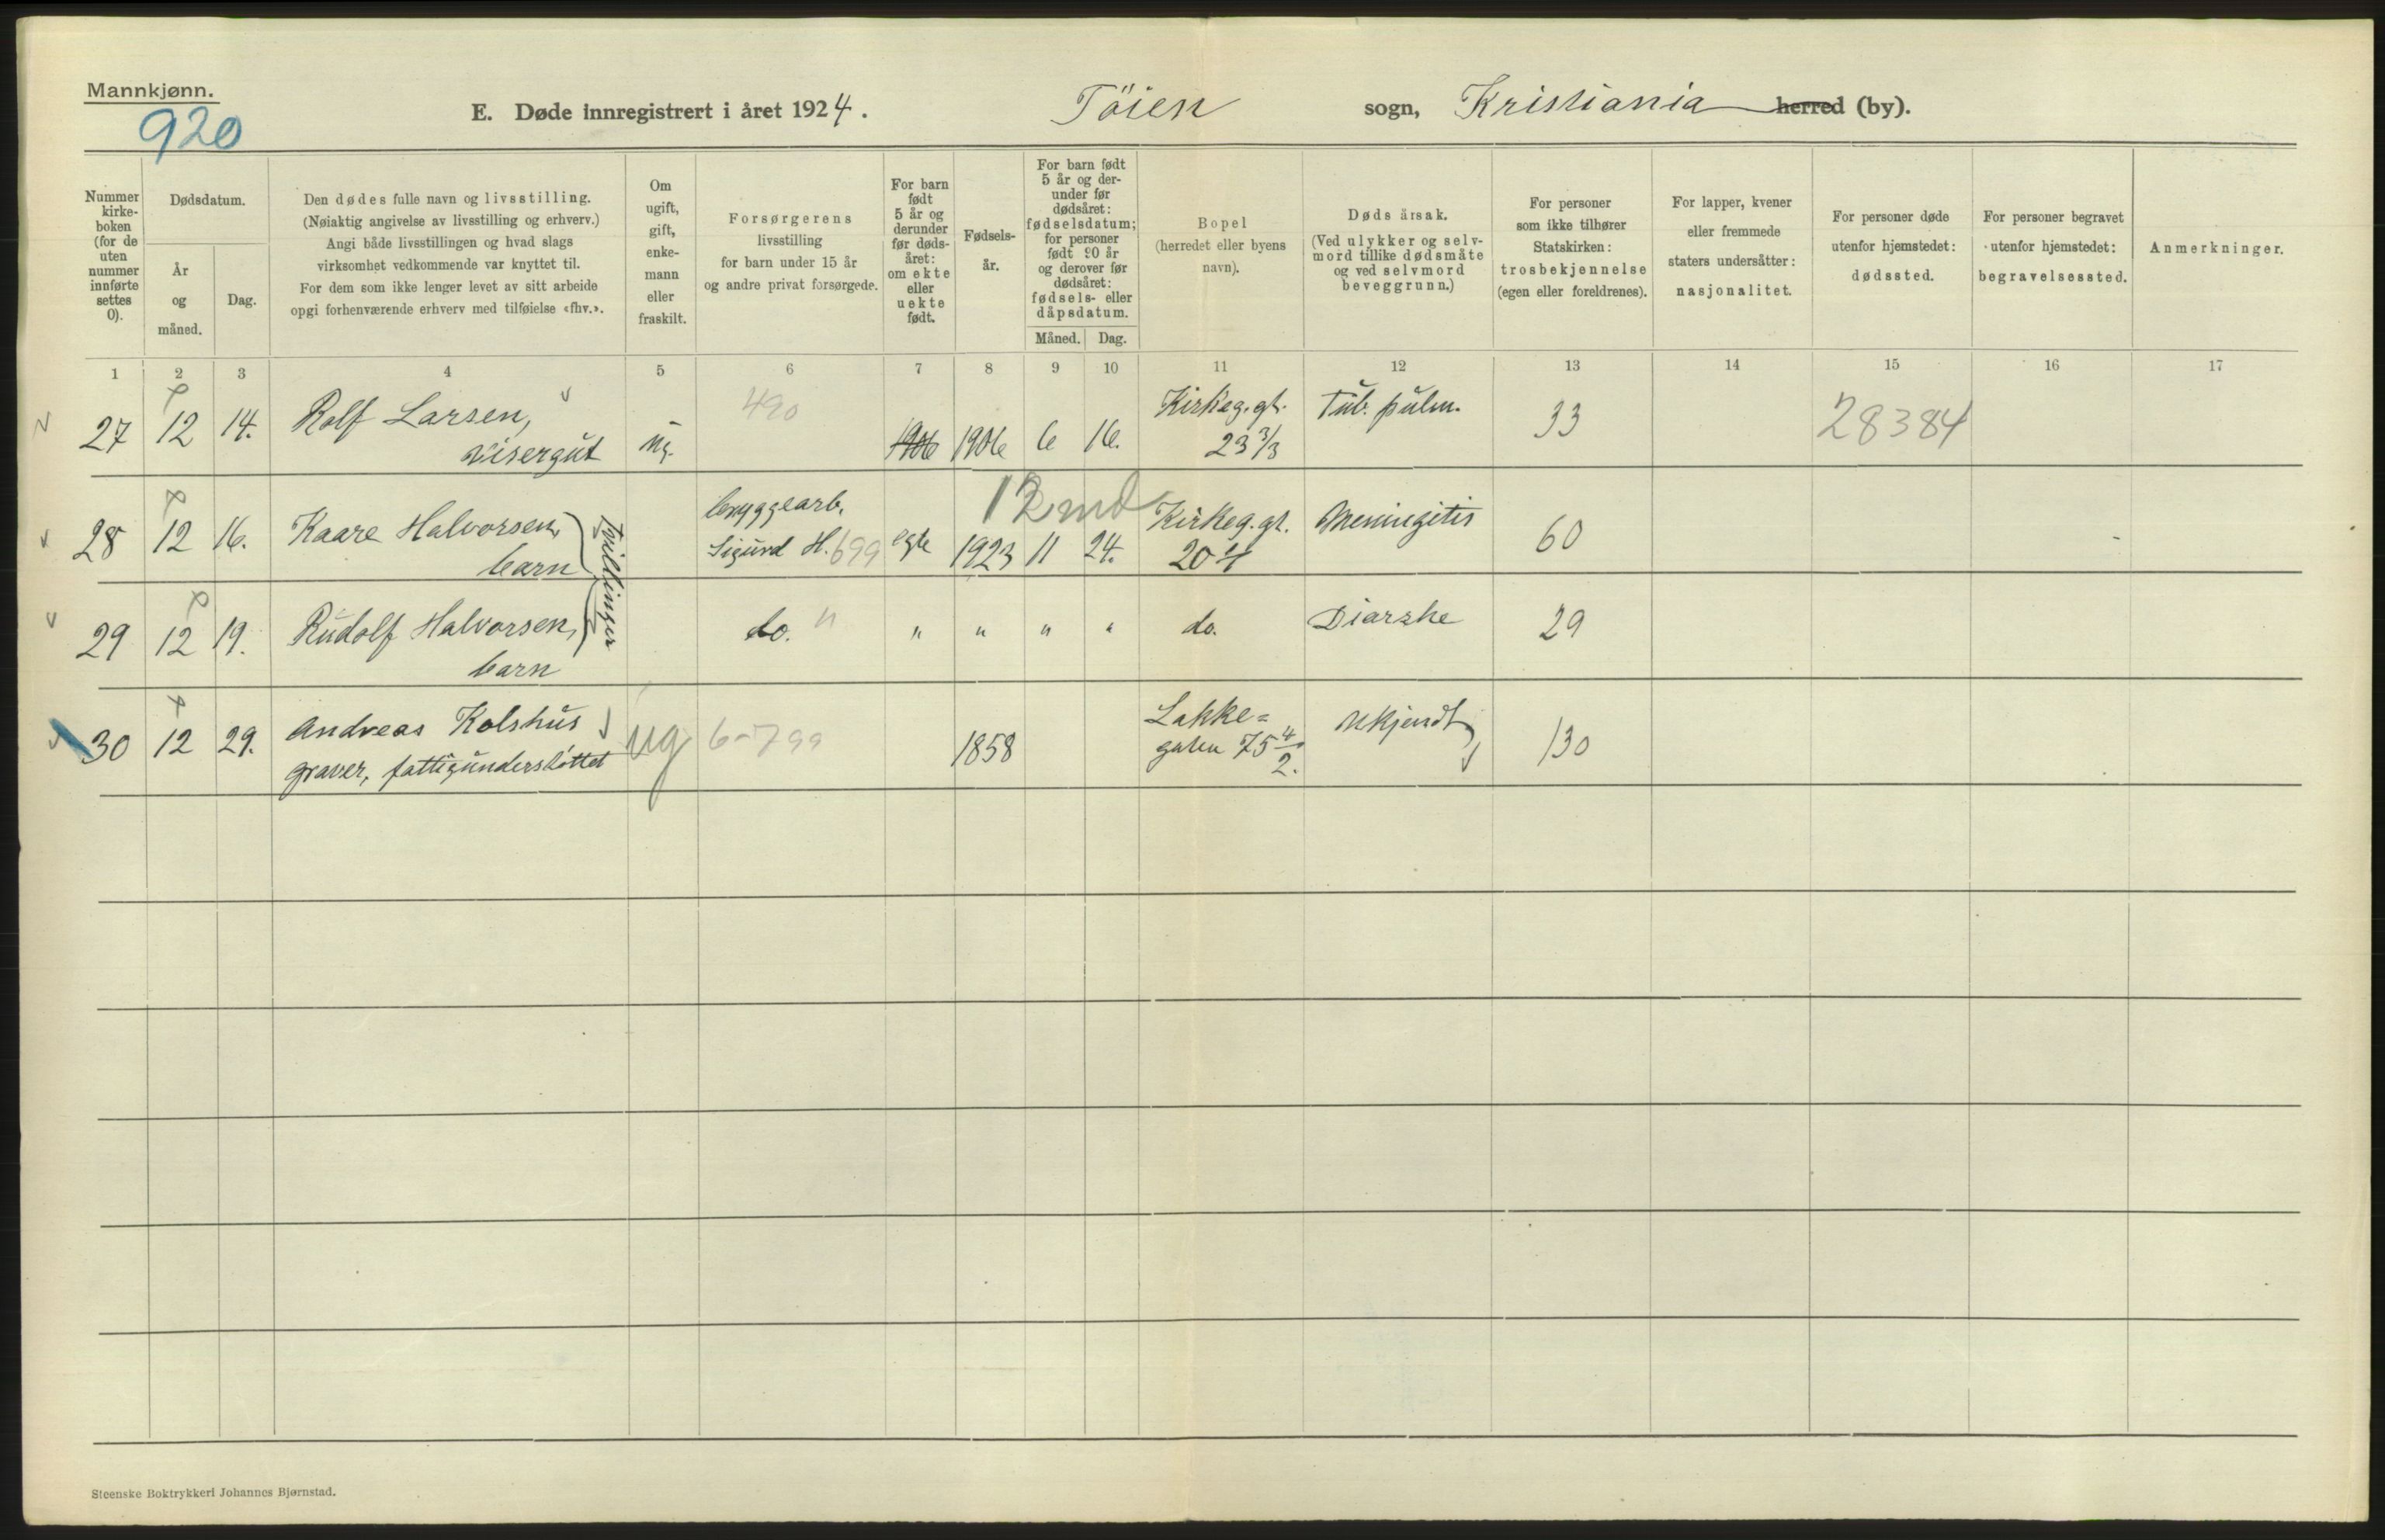 Mannkjønn.
920
E. Døde innregistrert i året 1924. Töien sogn, Kristiania herred (by).
Nummer kirkeboken (for de uten nummer innførte settes 0).
Dødsdatum.
År og måned.
Dag.
Den dødes fulle navn og livsstilling.
(Nøiaktig angivelse av livsstilling og erhverv.)
Angi både livsstillingen og hvad slags
virksomhet vedkommende var knyttet til.
For dem som ikke lenger levet av sitt arbeide
opgi forhenværende erhverv med tilføielse «fhv.».
Om ugift, gift, enkemann eller fraskilt.
Forsørgerens
livsstilling
for barn under 15 år
og andre privat forsørgede.
For barn født 5 år og derunder før dødsåret: om ekte eller uekte født.
Fødselsår.
For barn født 5 år og derunder før dødsåret: fødselsdatum; for personer født 90 år og derover før dødsåret: fødsels- eller dåpsdatum.
Måned. Dag.
Bopel
(herredet eller byens
navn).
Dødsårsak.
(Ved ulykker og selvmord tillike dødsmåte og ved selvmord beveggrunn.)
For personer
som ikke tilhører
Statskirken:
trosbekjennelse
(egen eller foreldrenes).
For lapper, kvener
eller fremmede
staters undersåtter:
nasjonalitet.
For personer døde
utenfor hjemstedet:
dødssted.
For personer begravet
utenfor hjemstedet:
begravelsessted.
Anmerkninger.
1 2 3 4 5 6 7 8 9 10 11 12 13 14 15 16 17
27 12 14. Rolf Larsen, 490 1906 1906 6 16. Kirkeg.gt. Tub. pulm. 33 28384
visergut ug. 23 3/3
12 md
28 12 16. Kaare Halvorsen, byggearb. Kirkeg.gt. Meningitis 60
barn Sigurd H. 699 egte 1923 11 24. 20
Tvillinger
29 12 19. Rudolf Halvorsen, do. " " " " " do. Diarrhe 29
barn
30 12 29. Andreas Kolshus ug 6-799 1858 Lakke= Ukjendt 130
graver, fattigunderstöttet gaten 75 4/2.
Steenske Boktrykkeri Johannes Bjørnstad.